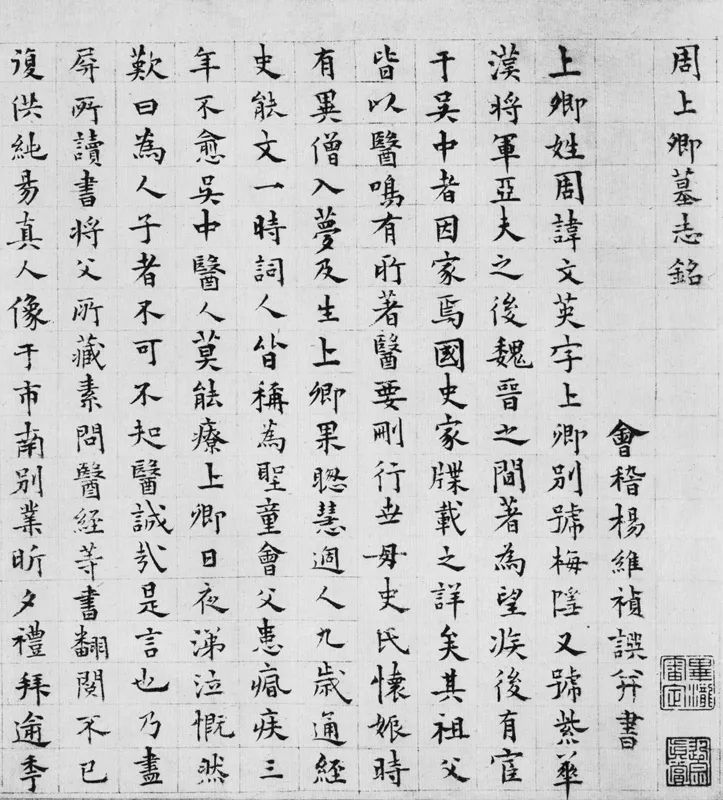 周上卿墓志銘
會稽楊維禎譔并書
上卿姓周諱文英字上卿別號梅隱又號紫華
漢將軍亞夫之後魏晉之間著為望族後有宦
于吳中者因家焉國史家牒載之詳矣其祖父
皆以醫鳴有所著醫要刪行世母史氏懷娠時
有異僧入夢及生上卿果聰慧過人九歲通經
史能文一時詞人皆稱為聖童會父患痟疾三
年不愈吳中醫人莫能療上卿日夜涕泣慨然
歎曰為人子者不可不知醫誠哉是言也乃盡
屏所讀書將父所藏素問醫經等書翻閱不已
復供純昜真人像于市南別業昕夕禮拜逾季